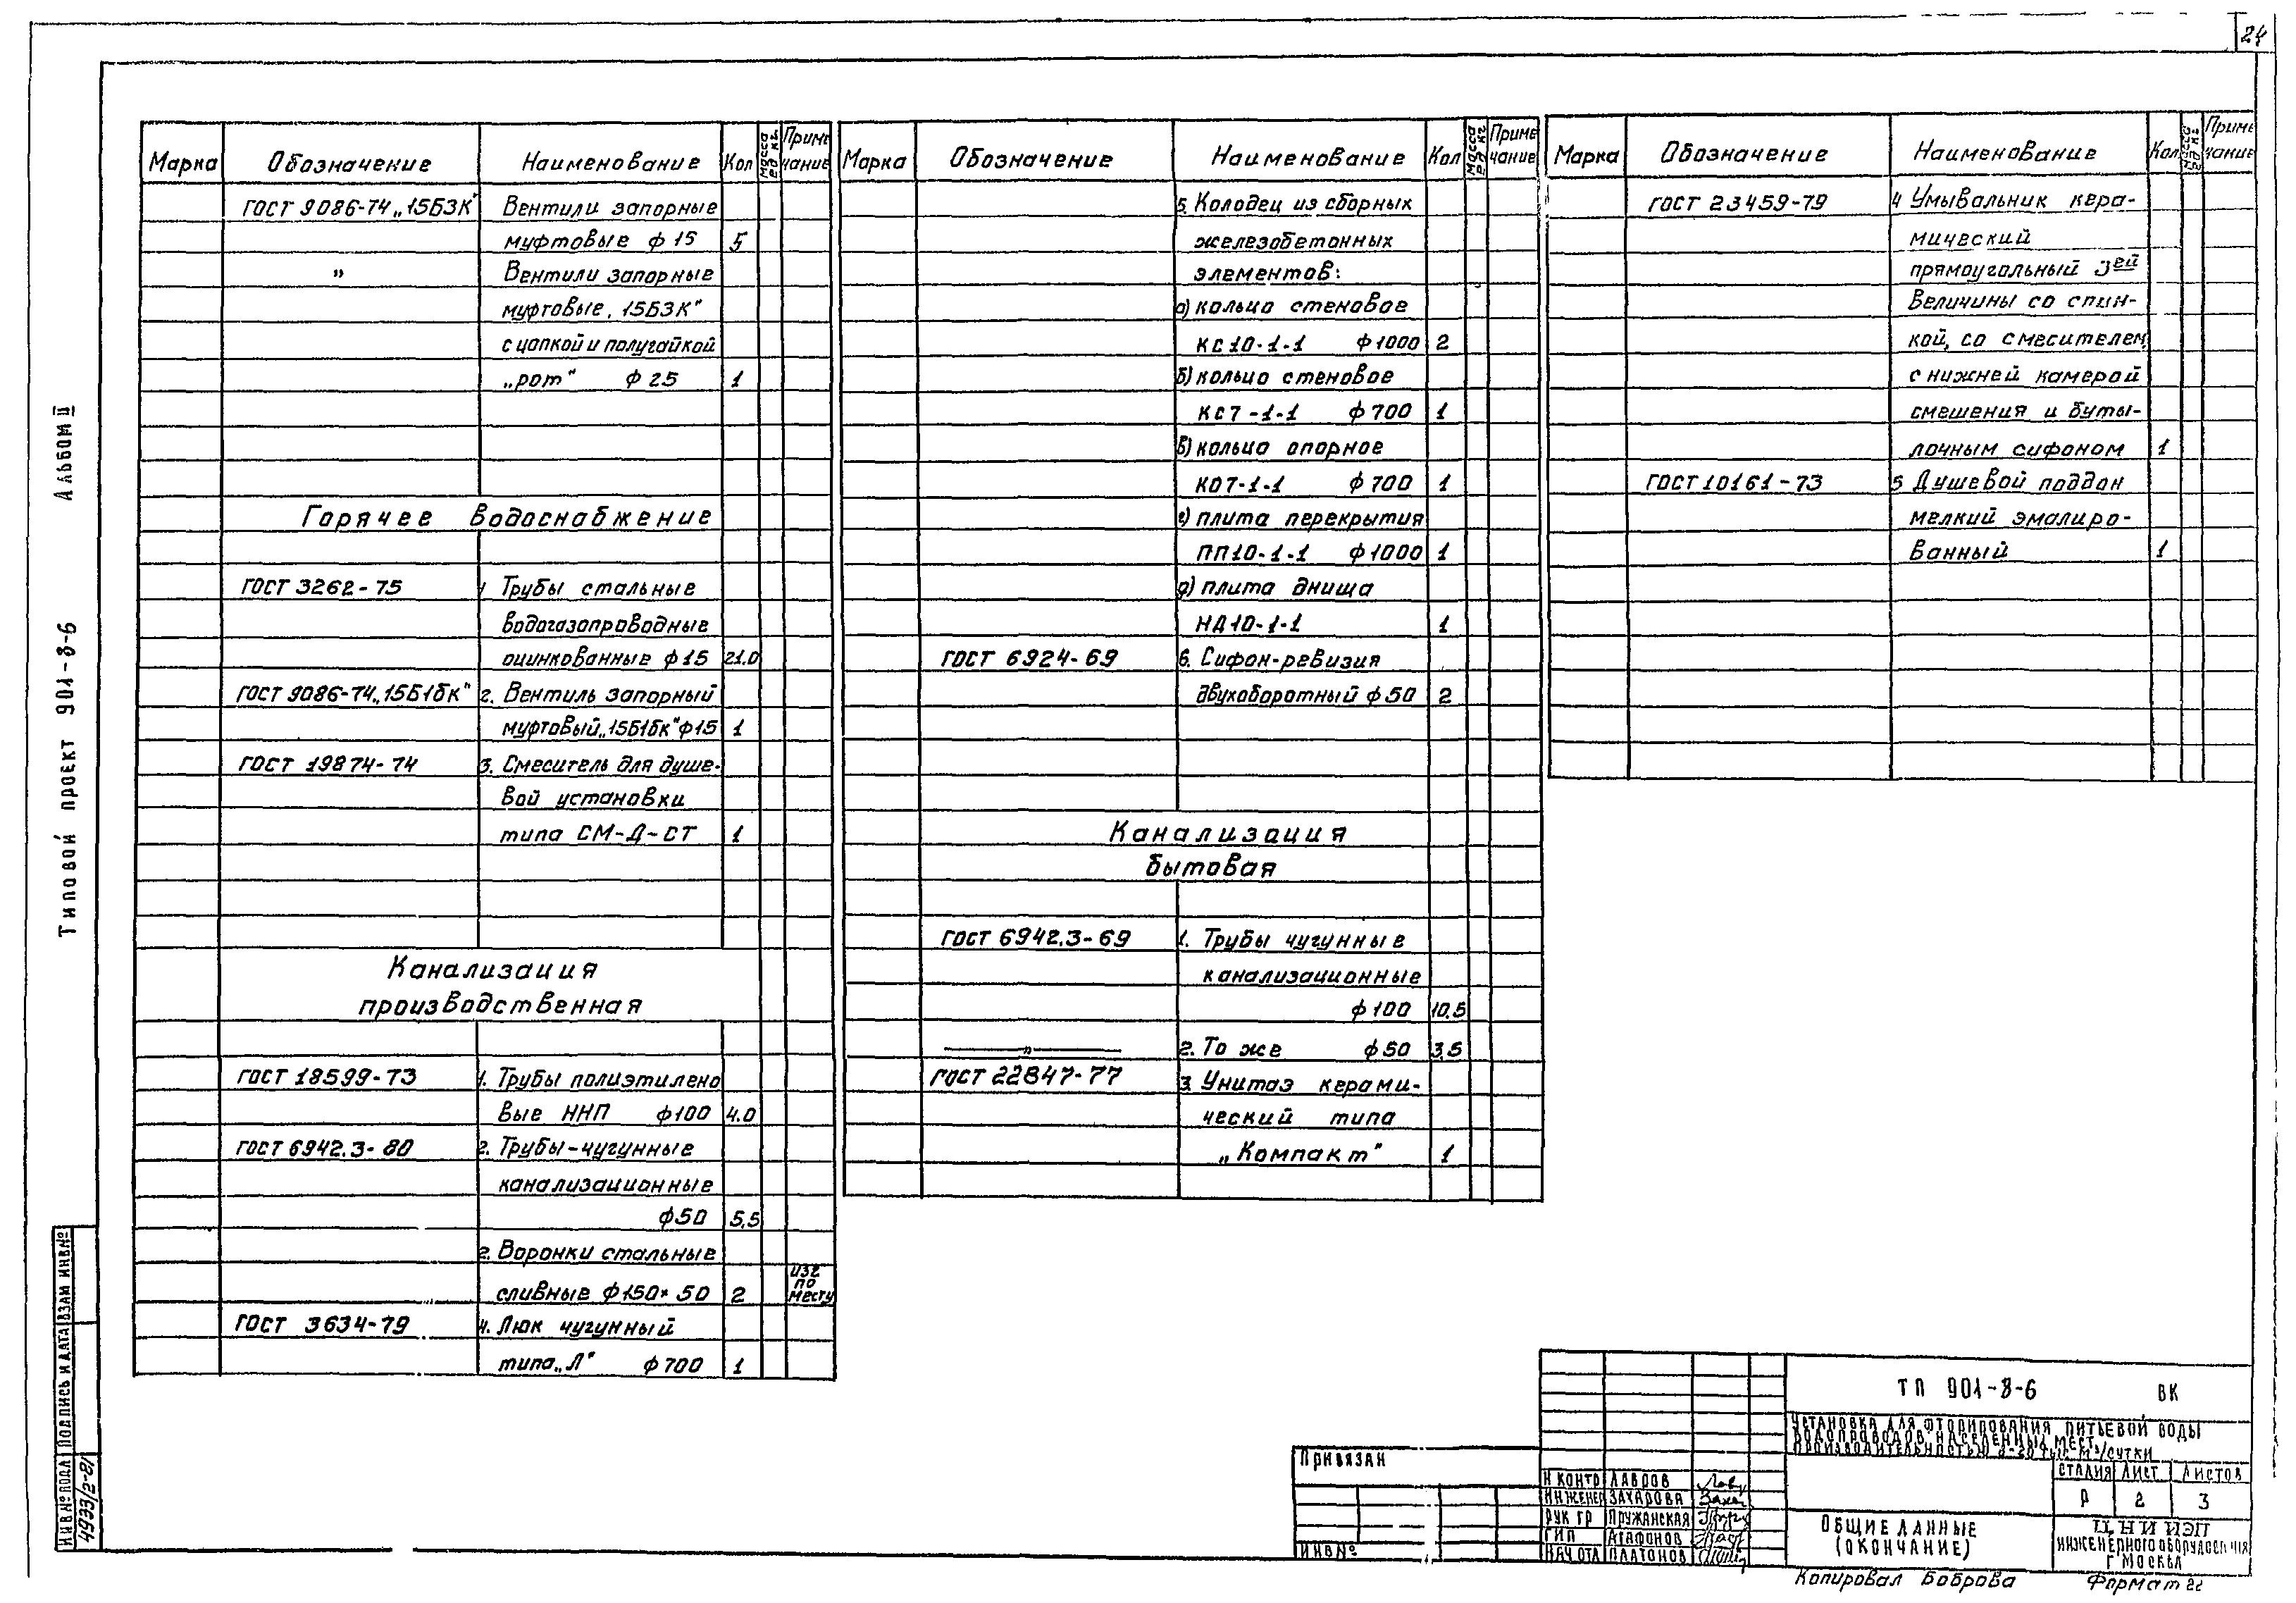 24
Марка Обозначение Наименование Кол Масса ед кг Приме чание
ГОСТ 9086-74 „15Б3К" Вентили запорные
муфтовые ф 15 5
" Вентили запорные
муфтовые, 15Б3К"
с цапкой и полугайкой
„рот" ф 25 1
Горячее водоснабжение
ГОСТ 3262-75 1 Трубы стальные
водогазопроводные
оцинкованные ф 15 21.0
ГОСТ 9086-74 „15Б1бК" 2. Вентиль запорный
муфтовый „15Б1бК" ф15 1
ГОСТ 19874-74 3. Смеситель для душе-
вой установки
типа СМ-Д-СТ 1
Канализация
производственная
ГОСТ 18599-73 1. Трубы полиэтилено
вые ННП ф100 4.0
ГОСТ 6942.3-80 2. Трубы-чугунные
канализационные
ф50 5,5
2. Воронки стальные
сливные ф150×50 2 изг по месту
ГОСТ 3634-79 4. Люк чугунный
типа „Л" ф700 1
Марка Обозначение Наименование Кол Масса ед кг Приме чание
5. Колодец из сборных
железобетонных
элементов:
а) кольцо стеновое
КС10-1-1 ф1000 2
б) кольцо стеновое
КС7-1-1 ф700 1
в) кольцо опорное
КО7-1-1 ф700 1
г) плита перекрытия
ПП10-1-1 ф1000 1
д) плита днища
НД10-1-1 1
ГОСТ 6924-69 6. Сифон-ревизия
двухоборотный ф50 2
Канализация
бытовая
ГОСТ 6942.3-69 1. Трубы чугунные
канализационные
ф100 10,5
—"— 2. То же ф50 3,5
ГОСТ 22847-77 3. Унитаз керами-
ческий типа
„Компакт" 1
Марка Обозначение Наименование Кол Масса ед кг Приме чание
ГОСТ 23459-79 4 Умывальник кера-
мический
прямоугольный 3ей
величины со спин-
кой, со смесителем,
с нижней камерой
смешения и буты-
лочным сифоном 1
ГОСТ 10161-73 5 Душевой поддон
мелкий эмалиро-
ванный 1
Типовой проект 901-8-6 Альбом II
Инв № подл Подпись и дата Взам инв №
4933/2-2/
Привязан
Инв №
ТП 901-8-6 ВК
Установка для фторирования питьевой воды
водопроводов населенных мест,
производительностью 8-20 тыс м³/сутки
Н контр Лавров
Инженер Захарова
Рук гр Пружанская
ГИП Агафонов
Нач отд Платонов
Стадия Лист Листов
Р 2 3
Общие данные
(окончание)
ЦНИИЭП
инженерного оборудования
г Москва
Копировал Боброва Формат 22